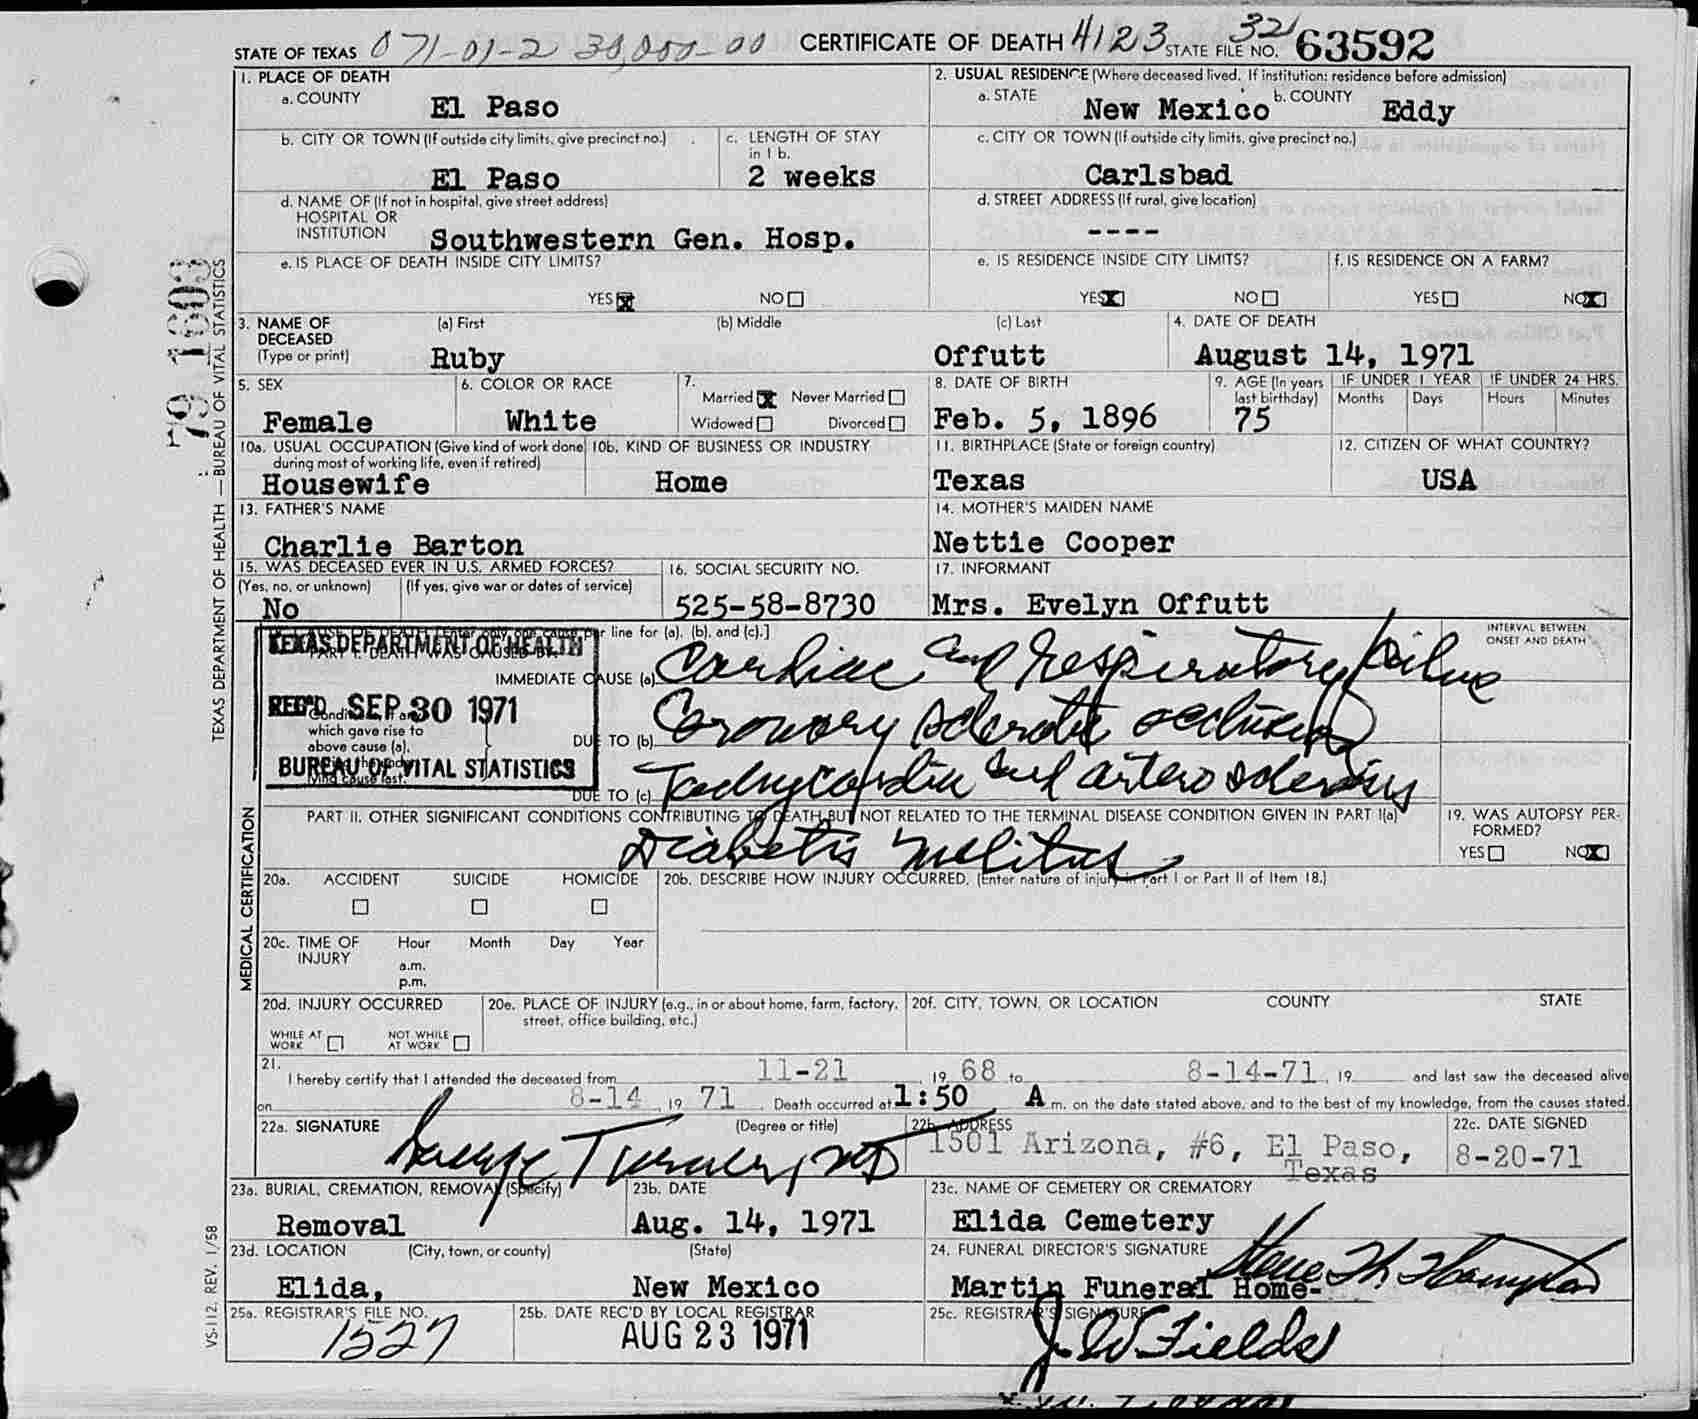 STATE OF TEXAS 071-01-2 30,000-00 CERTIFICATE OF DEATH 4123 STATE FILE NO. 32 63592
1. PLACE OF DEATH
a. COUNTY El Paso
2. USUAL RESIDENCE (Where deceased lived. If institution: residence before admission)
a. STATE New Mexico b. COUNTY Eddy
b. CITY OR TOWN (If outside city limits, give precinct no.) El Paso
c. LENGTH OF STAY in 1 b. 2 weeks
c. CITY OR TOWN (If outside city limits, give precinct no.) Carlsbad
d. NAME OF (If not in hospital, give street address) HOSPITAL OR INSTITUTION Southwestern Gen. Hosp.
d. STREET ADDRESS (If rural, give location) ----
e. IS PLACE OF DEATH INSIDE CITY LIMITS?
YES NO
e. IS RESIDENCE INSIDE CITY LIMITS?
YES NO
f. IS RESIDENCE ON A FARM?
YES NO
3. NAME OF DECEASED (Type or print)
(a) First (b) Middle (c) Last
Ruby Offutt
4. DATE OF DEATH
August 14, 1971
5. SEX
Female
6. COLOR OR RACE
White
7.
Married Never Married
Widowed Divorced
8. DATE OF BIRTH
Feb. 5, 1896
9. AGE (In years last birthday)
75
IF UNDER 1 YEAR
Months Days
IF UNDER 24 HRS.
Hours Minutes
10a. USUAL OCCUPATION (Give kind of work done during most of working life, even if retired)
Housewife
10b. KIND OF BUSINESS OR INDUSTRY
Home
11. BIRTHPLACE (State or foreign country)
Texas
12. CITIZEN OF WHAT COUNTRY?
USA
13. FATHER'S NAME
Charlie Barton
14. MOTHER'S MAIDEN NAME
Nettie Cooper
15. WAS DECEASED EVER IN U.S. ARMED FORCES?
(Yes, no, or unknown) (If yes, give war or dates of service)
No
16. SOCIAL SECURITY NO.
525-58-8730
17. INFORMANT
Mrs. Evelyn Offutt
[Enter only one cause per line for (a), (b), and (c).]
PART I. DEATH WAS CAUSED BY:
INTERVAL BETWEEN ONSET AND DEATH
IMMEDIATE CAUSE (a) Cardiac and Respiratory failure
Conditions, if any, which gave rise to above cause (a),
DUE TO (b) Coronary Sclerotic occlusion
DUE TO (c) Tachycardia and arterosclerosis
TEXAS DEPARTMENT OF HEALTH
REC'D SEP 30 1971
BUREAU OF VITAL STATISTICS
PART II. OTHER SIGNIFICANT CONDITIONS CONTRIBUTING TO DEATH BUT NOT RELATED TO THE TERMINAL DISEASE CONDITION GIVEN IN PART I(a)
Diabetis Melitus
19. WAS AUTOPSY PERFORMED?
YES NO
20a. ACCIDENT SUICIDE HOMICIDE
20b. DESCRIBE HOW INJURY OCCURRED. (Enter nature of injury in Part I or Part II of Item 18.)
20c. TIME OF INJURY Hour Month Day Year
a.m.
p.m.
20d. INJURY OCCURRED
WHILE AT WORK NOT WHILE AT WORK
20e. PLACE OF INJURY (e.g., in or about home, farm, factory, street, office building, etc.)
20f. CITY, TOWN, OR LOCATION COUNTY STATE
21.
I hereby certify that I attended the deceased from 11-21, 19 68 to 8-14-71, 19 and last saw the deceased alive
on 8-14, 19 71. Death occurred at 1:50 A m. on the date stated above, and to the best of my knowledge, from the causes stated.
22a. SIGNATURE (Degree or title)
George Turner, MD
22b. ADDRESS
1501 Arizona, #6, El Paso, Texas
22c. DATE SIGNED
8-20-71
23a. BURIAL, CREMATION, REMOVAL (Specify)
Removal
23b. DATE
Aug. 14, 1971
23c. NAME OF CEMETERY OR CREMATORY
Elida Cemetery
23d. LOCATION (City, town, or county) (State)
Elida, New Mexico
24. FUNERAL DIRECTOR'S SIGNATURE
Martin Funeral Home-
25a. REGISTRAR'S FILE NO.
1527
25b. DATE REC'D BY LOCAL REGISTRAR
AUG 23 1971
25c. REGISTRAR'S SIGNATURE
J. W. Fields
TEXAS DEPARTMENT OF HEALTH — BUREAU OF VITAL STATISTICS
MEDICAL CERTIFICATION
VS-112, REV. 1/58